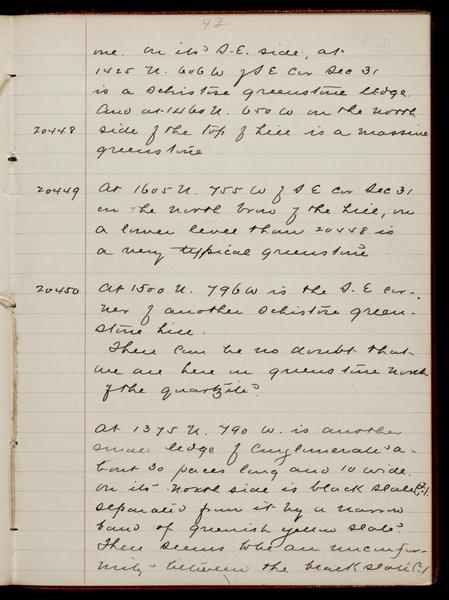 43
one. On its S.E. side, at
1425 N. 606 W of S E Cor Sec 31
is a schistose greenstone ledge.
And at 1460 N. 650 W on the north
20448 side of the top of hill is a massive
greenstone
20449 At 1605 N. 755 W of S E cor Sec 31
on the north brow of the hill, on
a lower level than 20448 is
a very typical greenstone
20450 At 1500 N. 796 W is the S. E cor-
ner of another schistose green-
stone hill.
There can be no doubt that
we are here on greenstone north
of the quartzite.
At 1375 N. 790 W. is another
small ledge of Conglomerate a-
bout 30 paces long and 10 wide.
On its north side is black slate(?)
separated from it by a narrow
band of greenish yellow slate.
There seems to be an unconfor-
mity between the black slate(?)